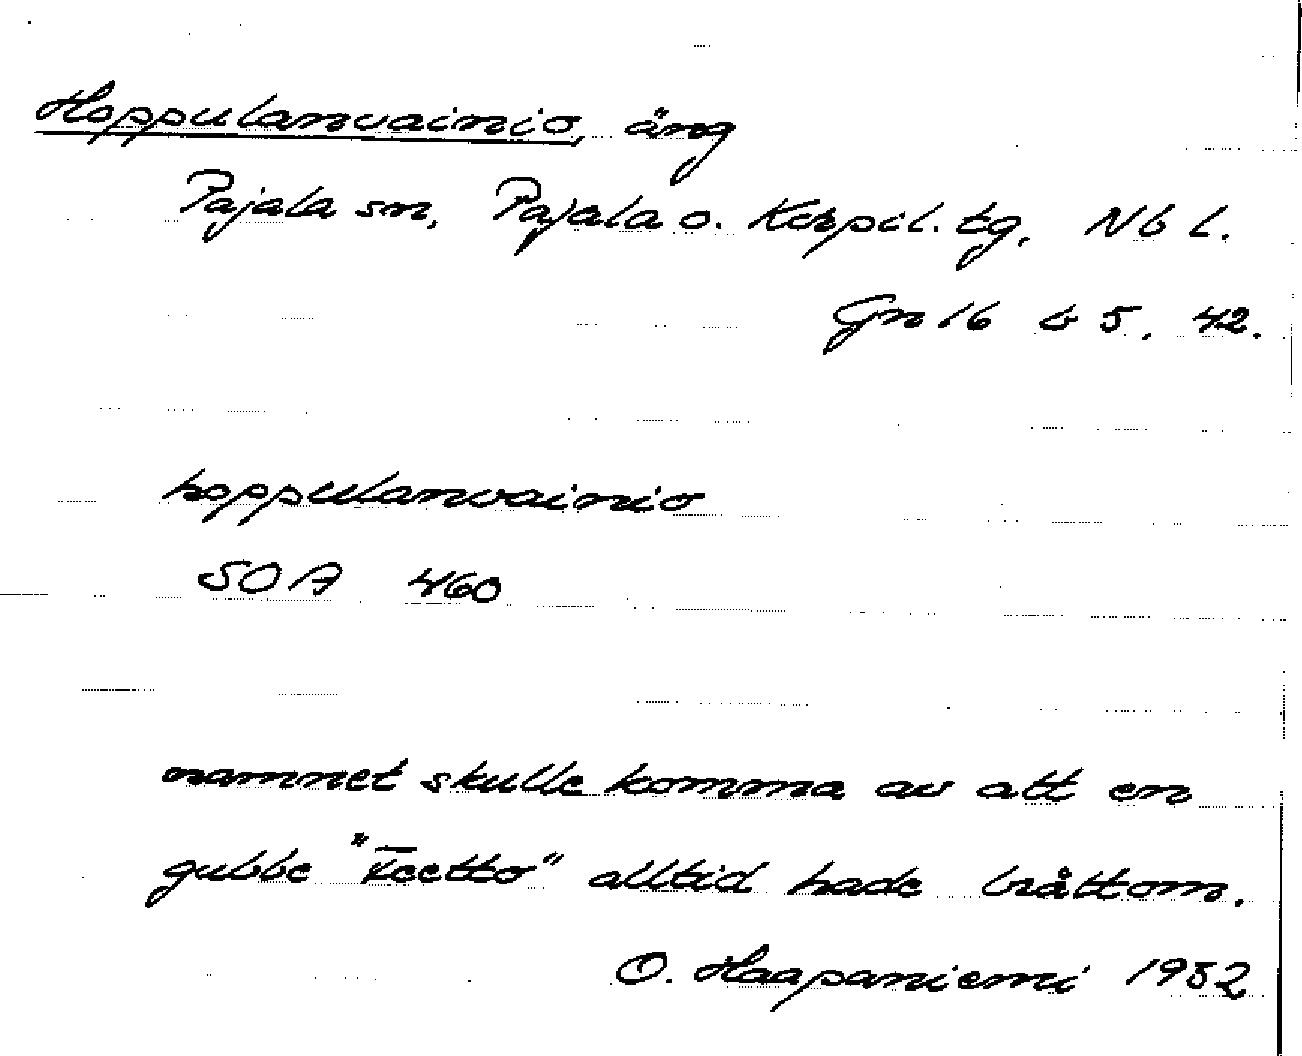 Hoppulanvainio, äng
Pajala sn, Pajala o. Korpil. tg, Nb l.
Gn 16 b 5. 42.
hoppulanvainio
SOA 460
namnet skulle komma av att en
gubbe "Feetto" alltid hade bråttom.
O. Haapaniemi 1982